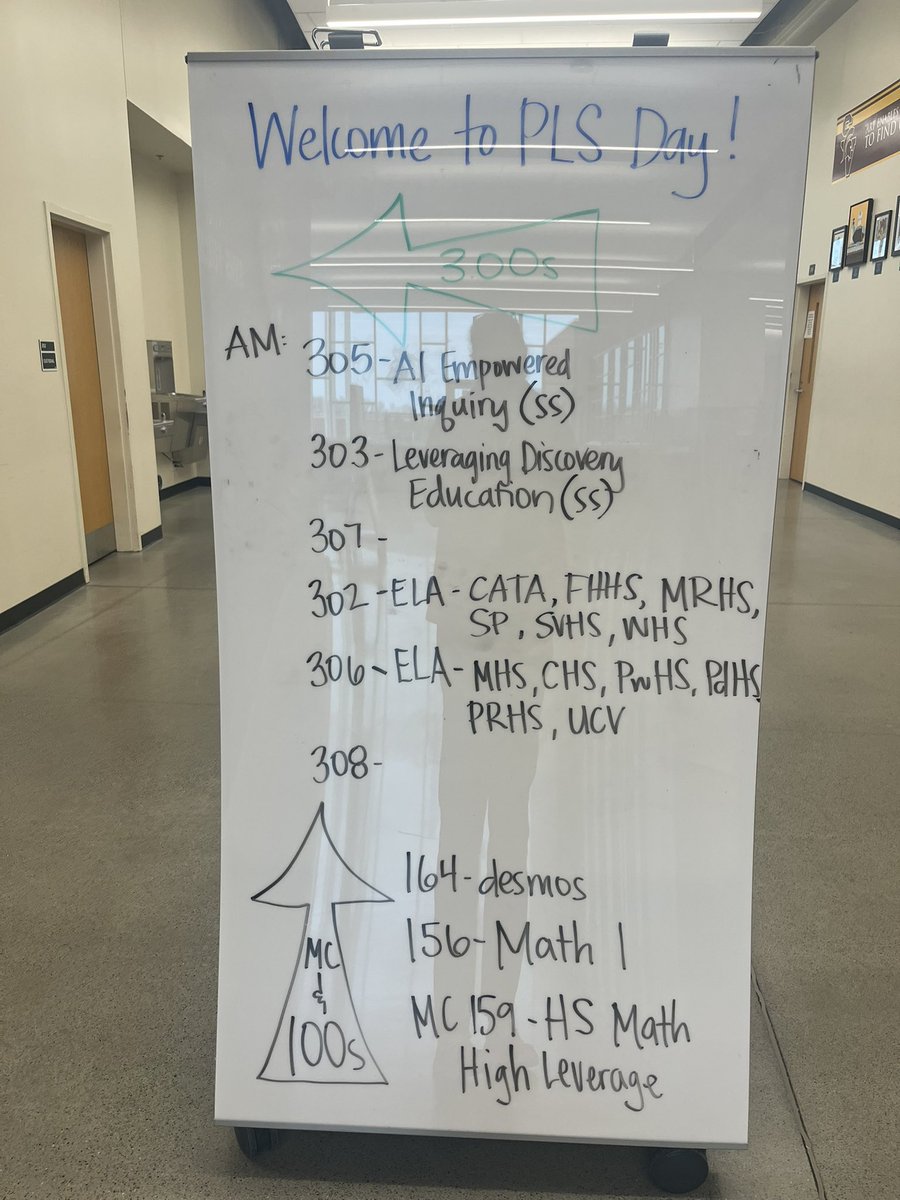 Welcome to PLS Day!
300s
AM:
305-AI Empowered
Inquiry (SS)
303-Leveraging Discovery
Education (SS)
307-
302-ELA-CATA, FHHS, MRHS,
SP, SVHS, WHS
306-ELA-MHS, CHS, PwHS, PdHS
PRHS, UCV
308-
164-desmos
156-Math 1
MC 159-HS Math
High Leverage
MC
&
100s
TO FIND